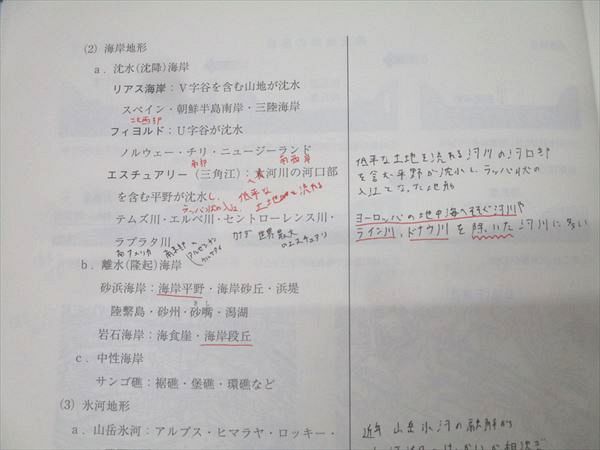 (2) 海岸地形
a．沈水(沈降)海岸
リアス海岸：V字谷を含む山地が沈水
スペイン・朝鮮半島南岸・三陸海岸
北西部
フィヨルド：U字谷が沈水
ノルウェー・チリ・ニュージーランド
南部 南西岸
エスチュアリー(三角江)：大河川の河口部
を含む平野が沈水し、低平な土地を流れる
ラッパ状の入江
テムズ川・エルベ川・セントローレンス川・
ラプラタ川
南アメリカ アルゼンチン ウルグアイ カナダ 世界最大のエスチュアリ
b．離水(隆起)海岸
砂浜海岸：海岸平野・海岸砂丘・浜堤
陸繋島・砂州・砂嘴・潟湖
さし
岩石海岸：海食崖・海岸段丘
c．中性海岸
サンゴ礁：裾礁・堡礁・環礁など
(3) 氷河地形
a．山岳氷河：アルプス・ヒマラヤ・ロッキー・
低平な土地を流れる河川の河口部
を含む平野が沈水し、ラッパ状の
入江となった地形
ヨーロッパの地中海へ注ぐ河川や
ライン川、ドナウ川を除いた河川に多い
近年 山岳氷河の融解が